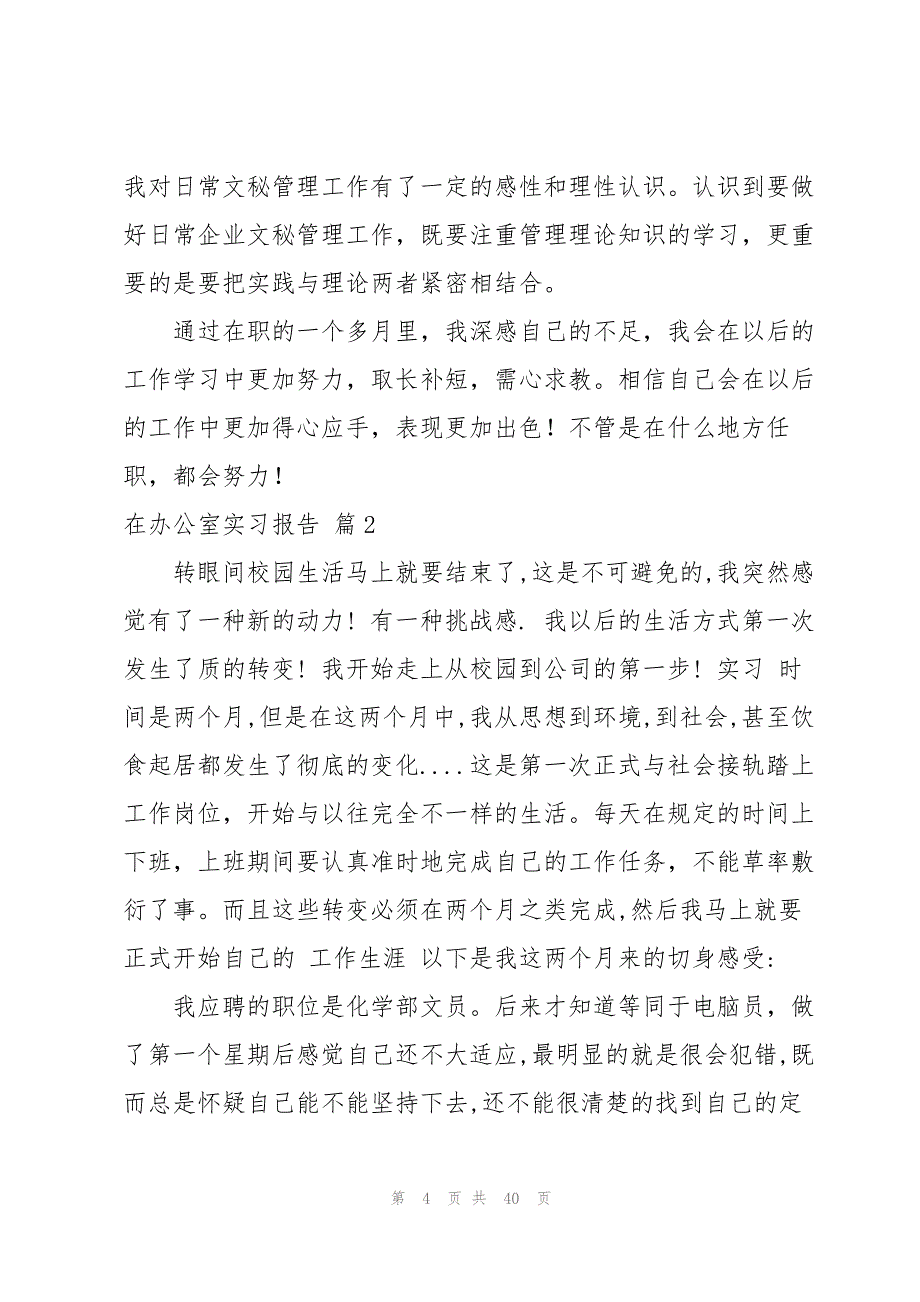 我对日常文秘管理工作有了一定的感性和理性认识。认识到要做
好日常企业文秘管理工作，既要注重管理理论知识的学习，更重
要的是要把实践与理论两者紧密相结合。
通过在职的一个多月里，我深感自己的不足，我会在以后的
工作学习中更加努力，取长补短，需心求教。相信自己会在以后
的工作中更加得心应手，表现更加出色！不管是在什么地方任
职，都会努力！
在办公室实习报告 篇2
转眼间校园生活马上就要结束了,这是不可避免的,我突然感
觉有了一种新的动力! 有一种挑战感. 我以后的生活方式第一次
发生了质的转变! 我开始走上从校园到公司的第一步! 实习 时
间是两个月,但是在这两个月中,我从思想到环境,到社会,甚至饮
食起居都发生了彻底的变化....这是第一次正式与社会接轨踏上
工作岗位，开始与以往完全不一样的生活。每天在规定的时间上
下班，上班期间要认真准时地完成自己的工作任务，不能草率敷
衍了事。而且这些转变必须在两个月之类完成,然后我马上就要
正式开始自己的 工作生涯 以下是我这两个月来的切身感受:
我应聘的职位是化学部文员。后来才知道等同于电脑员，做
了第一个星期后感觉自己还不大适应,最明显的就是很会犯错,既
而总是怀疑自己能不能坚持下去,还不能很清楚的找到自己的定
第 4 页 共 40 页